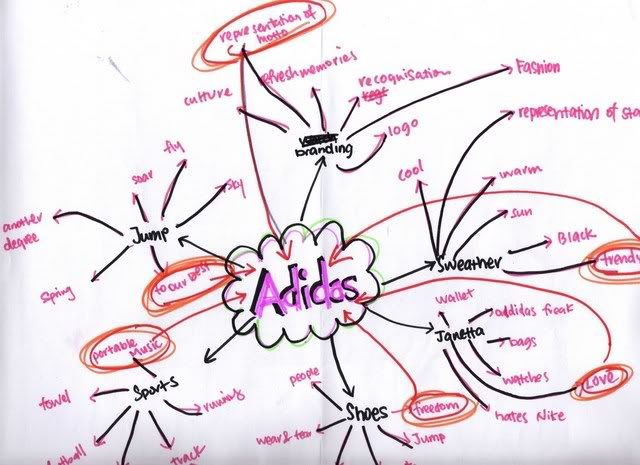 representation of
motto
refreshmemories
recoqnisation
culture
Fashion
logo
branding
representation of sta
cool
warm
sun
Black
Sweather
trendy
fly
soar
sky
another
degree
Jump
Spring
to our best
Adidas
portable
music
Sports
towel
runing
track
wallet
addidas freak
Janetta
bags
watches
hates Nike
Love
people
Shoes
freedom
wear & tear
Jump